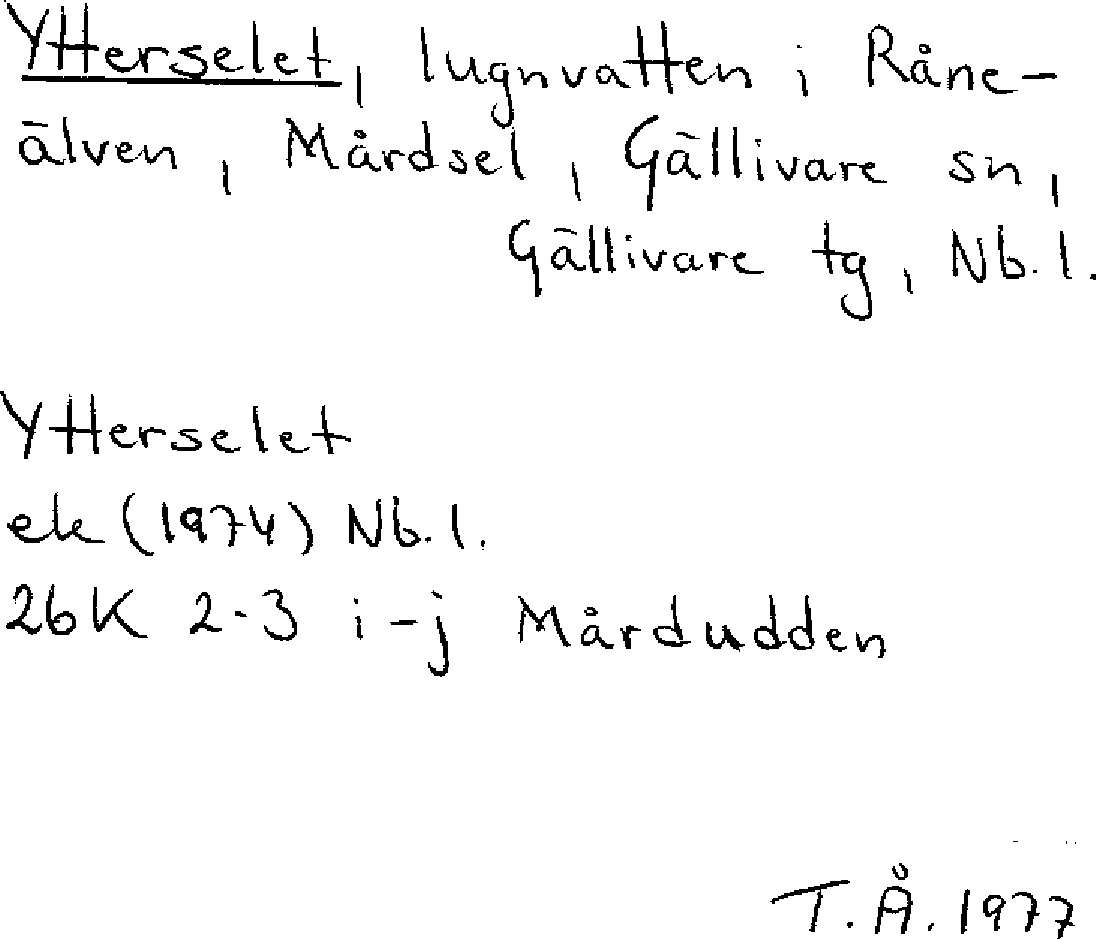 Ytterselet, lugnvatten i Råne-
älven, Mårdsel, Gällivare sn,
Gällivare tg, Nb. l.
Ytterselet
ek (1974) Nb. l.
26K 2-3 i-j Mårdudden
T. Å. 1977